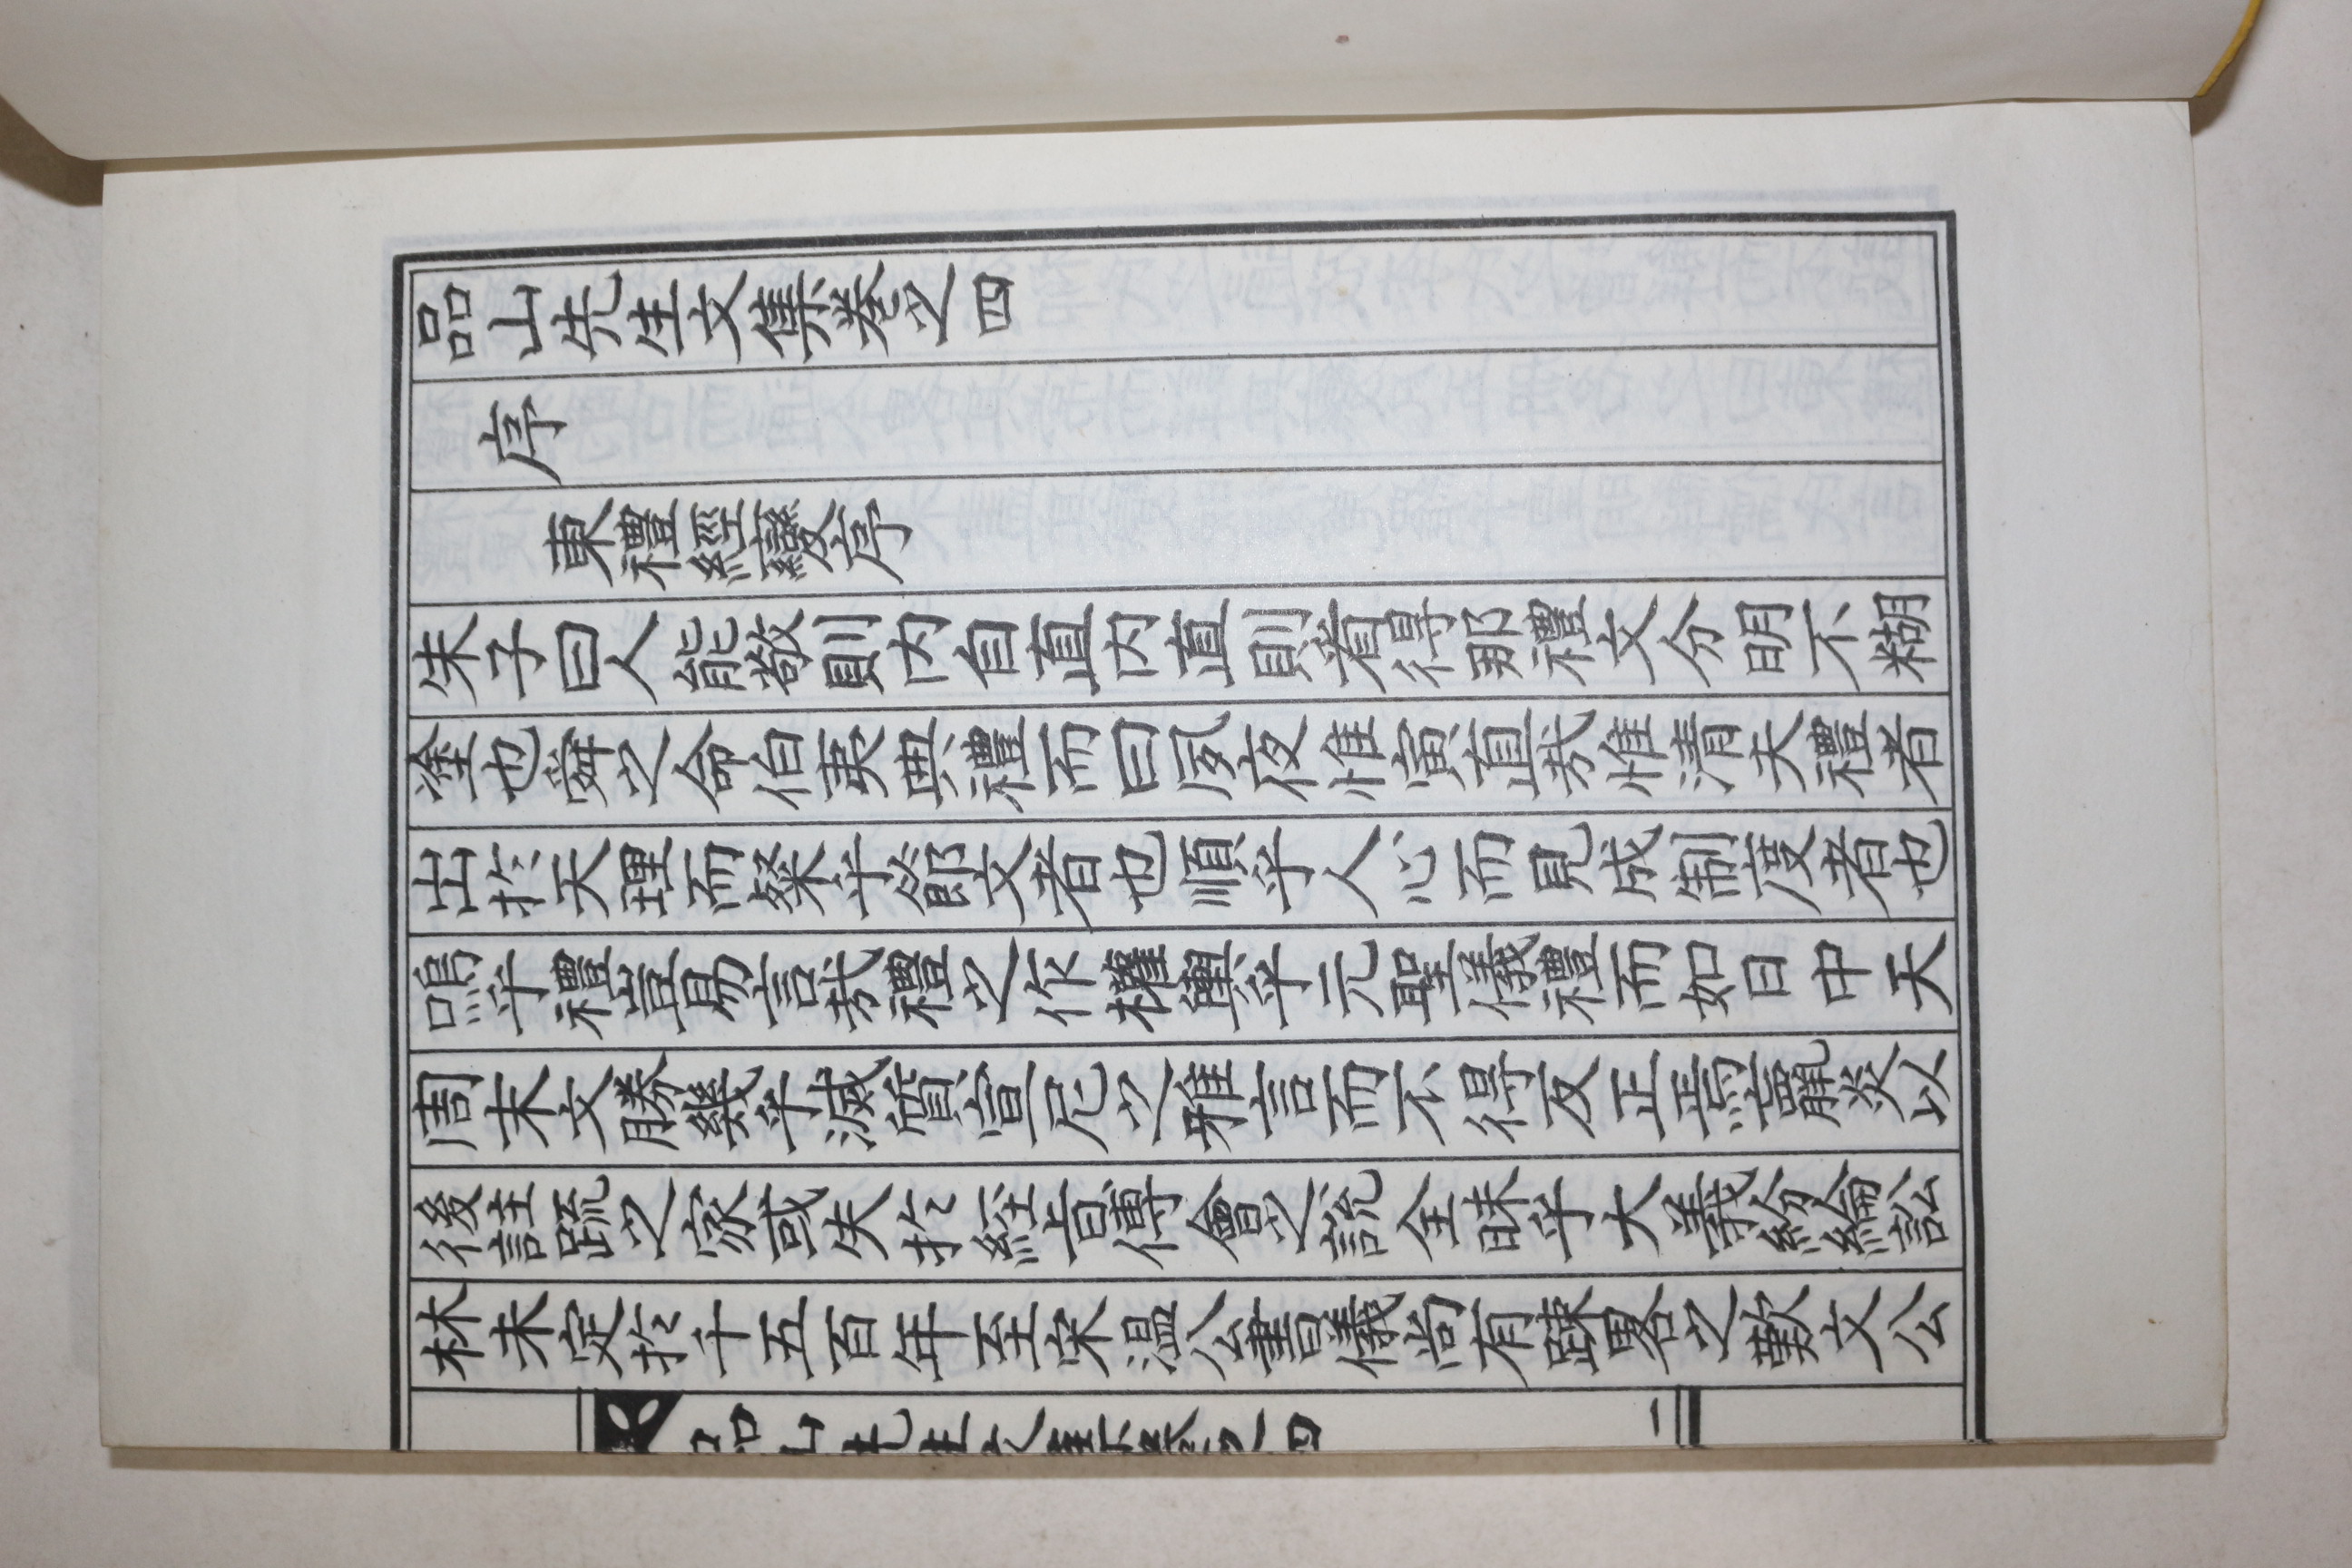 品山先生文集卷之四
序
東禮經變序
朱子曰人能敬則内自直内直則看得那禮文分明不糊
塗也舜之命伯夷典禮而曰夙夜惟寅直哉惟清夫禮者
出於天理而粲乎節文者也順乎人心而見成制度者也
嗚乎禮豈易言哉禮之作權輿乎元聖儀禮而如日中天
周末文勝幾乎滅質宣尼之雅言而不得反正焉嬴炎以
後註疏之家或失於経旨傅會之說全昧乎大義紛綸訟
林未定於千五百年至宋温公書儀尚有踈畧之歎文公
品山先生文集卷之四
二